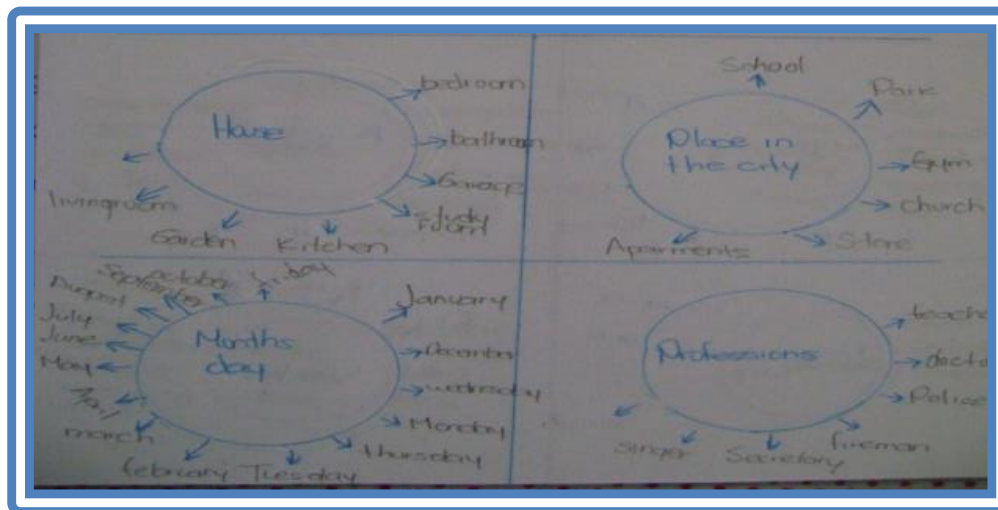 House
bedroom
bathroom
Garage
study
room
Kitchen
Garden
livingroom
Place in
the city
School
Park
Gym
church
Store
Aparments
Months
day
January
December
wednesday
Monday
thursday
Tuesday
february
march
April
May
June
July
August
September
october
friday
Professions
teache
docto
Police
fireman
Secretary
singer